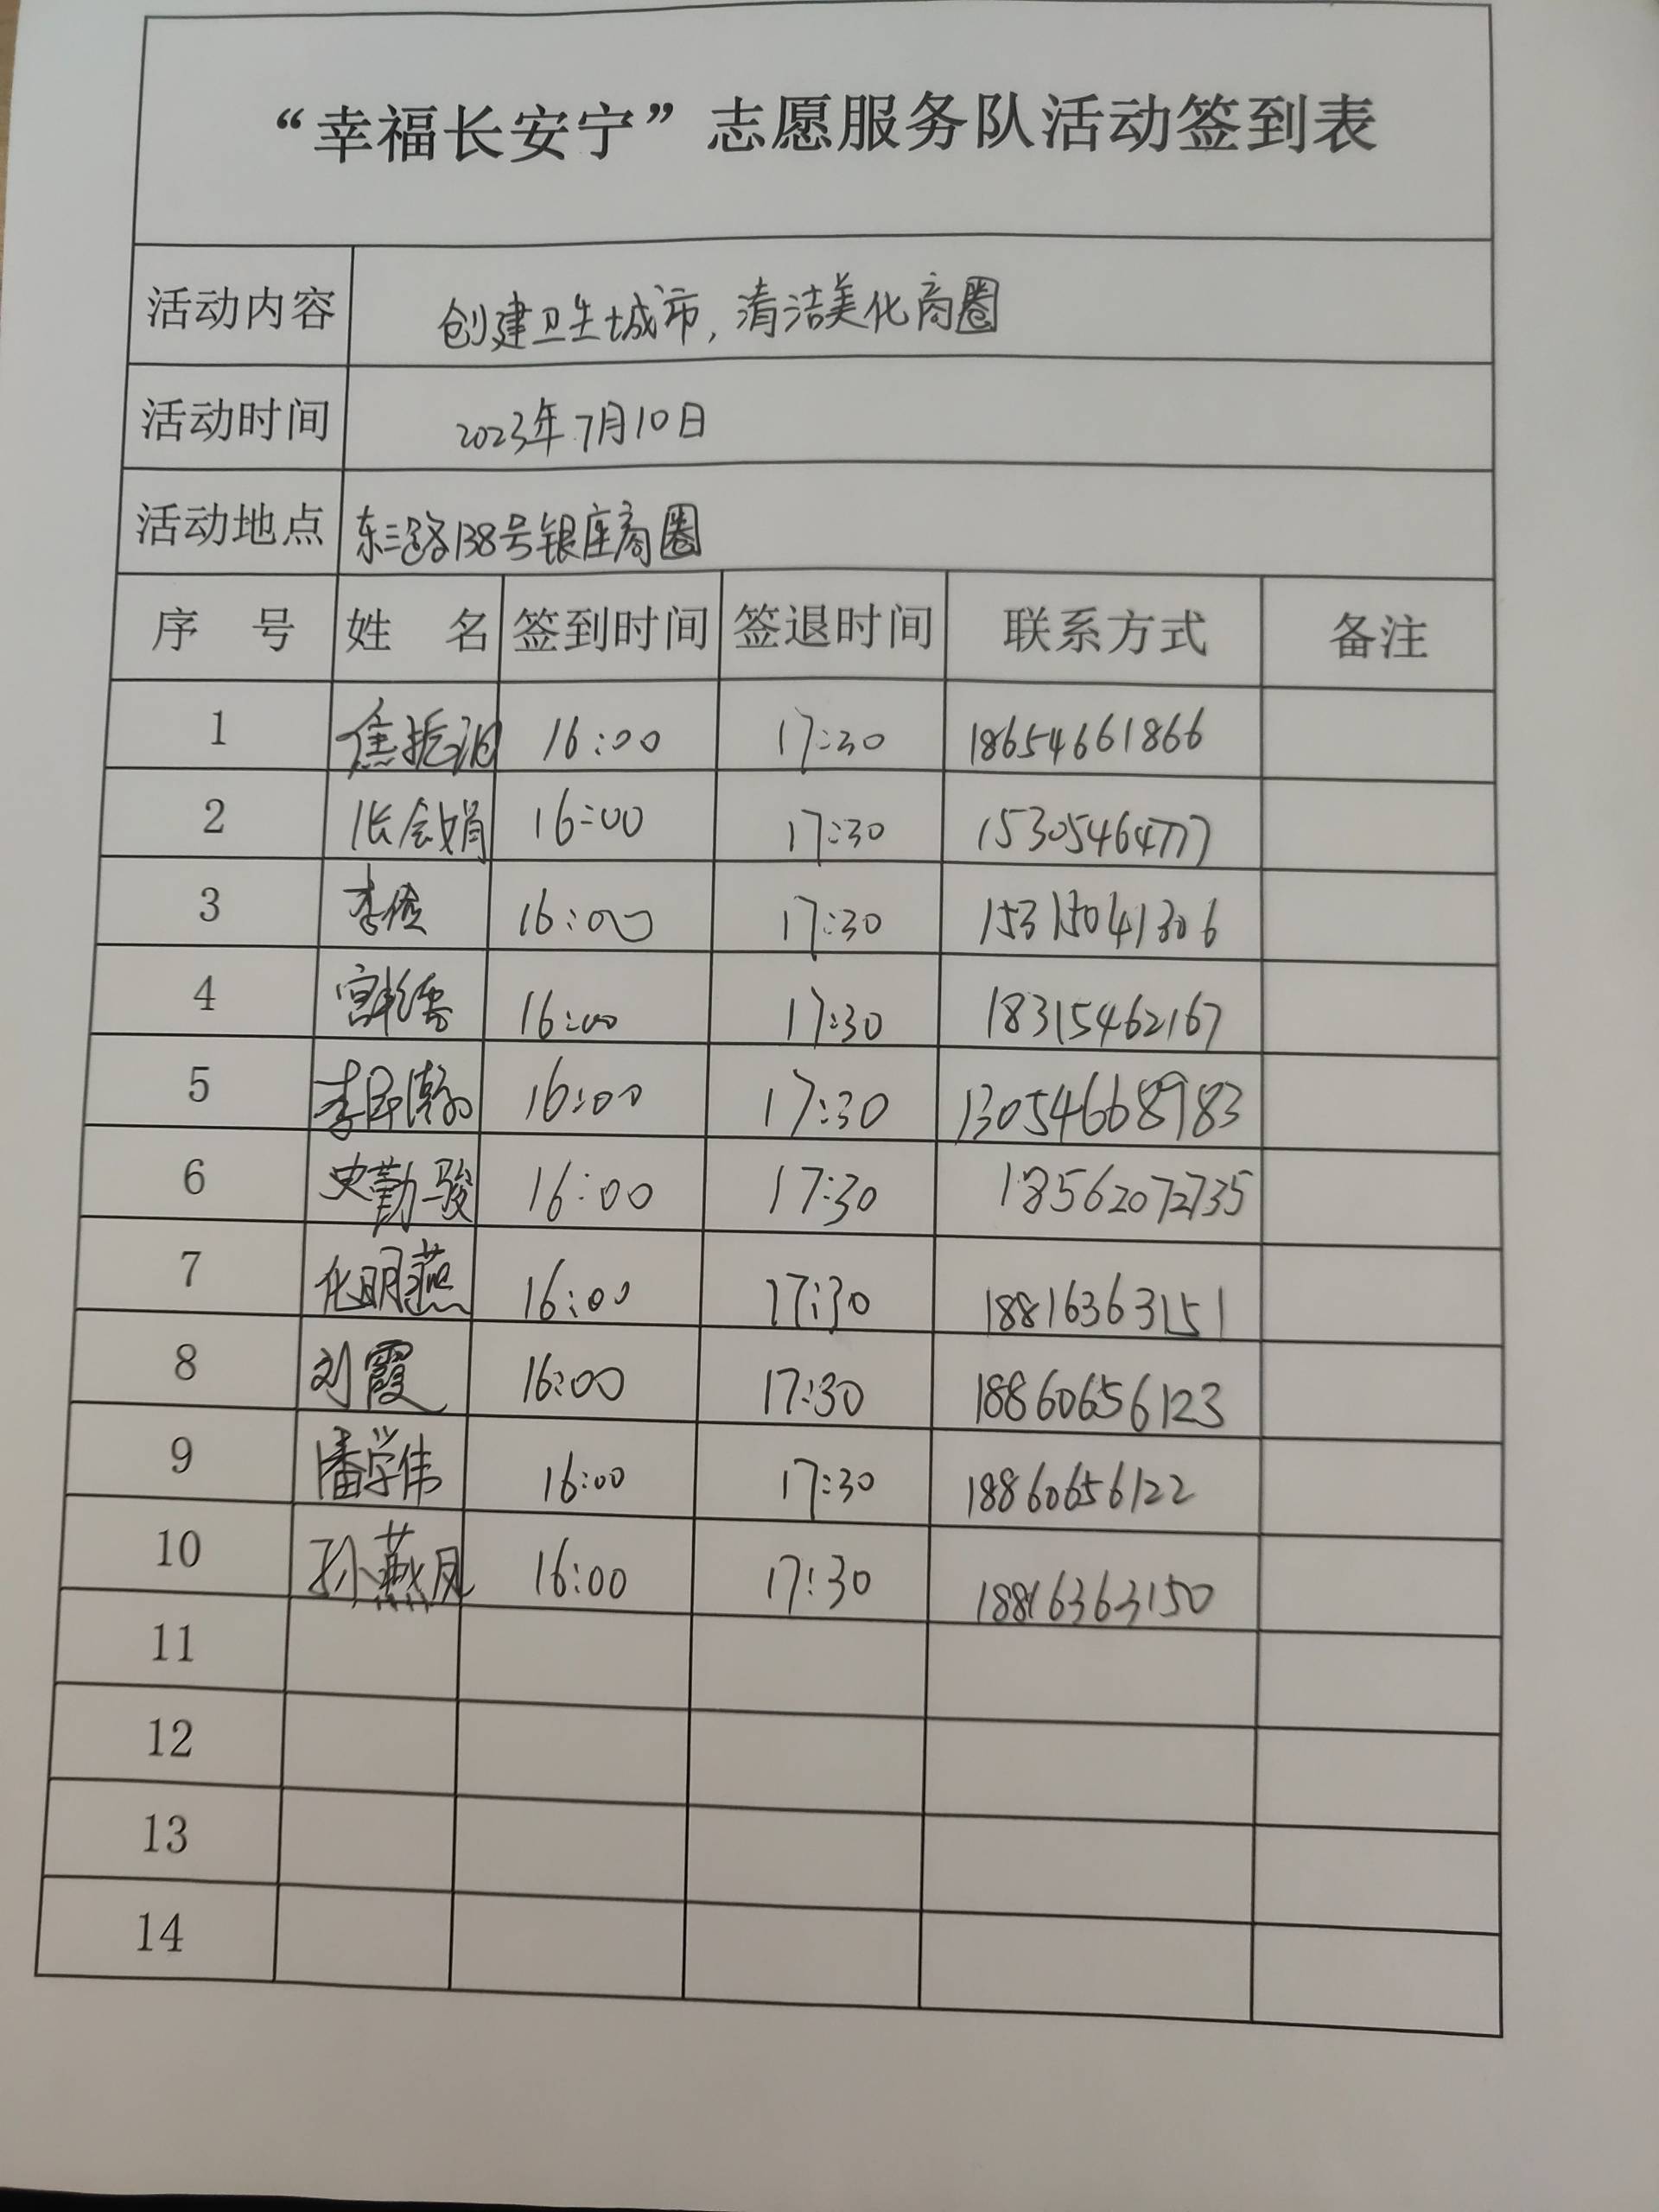 “幸福长安宁”志愿服务队活动签到表
活动内容 创建卫生城市,清洁美化商圈
活动时间 2023年7月10日
活动地点 东三路138号银座商圈
序 号 姓 名 签到时间 签退时间 联系方式 备注
1 焦振 16:00 17:30 18654661866
2 张会娟 16:00 17:30 15305464777
3 李俭 16:00 17:30 15315041306
4 宫 16:00 17:30 18315462167
5 李 16:00 17:30 13054668983
6 史勤骏 16:00 17:30 18562072735
7 化明燕 16:00 17:30 18816363151
8 刘霞 16:00 17:30 18860656123
9 潘学伟 16:00 17:30 18860656122
10 孙燕凤 16:00 17:30 18816363150
11
12
13
14